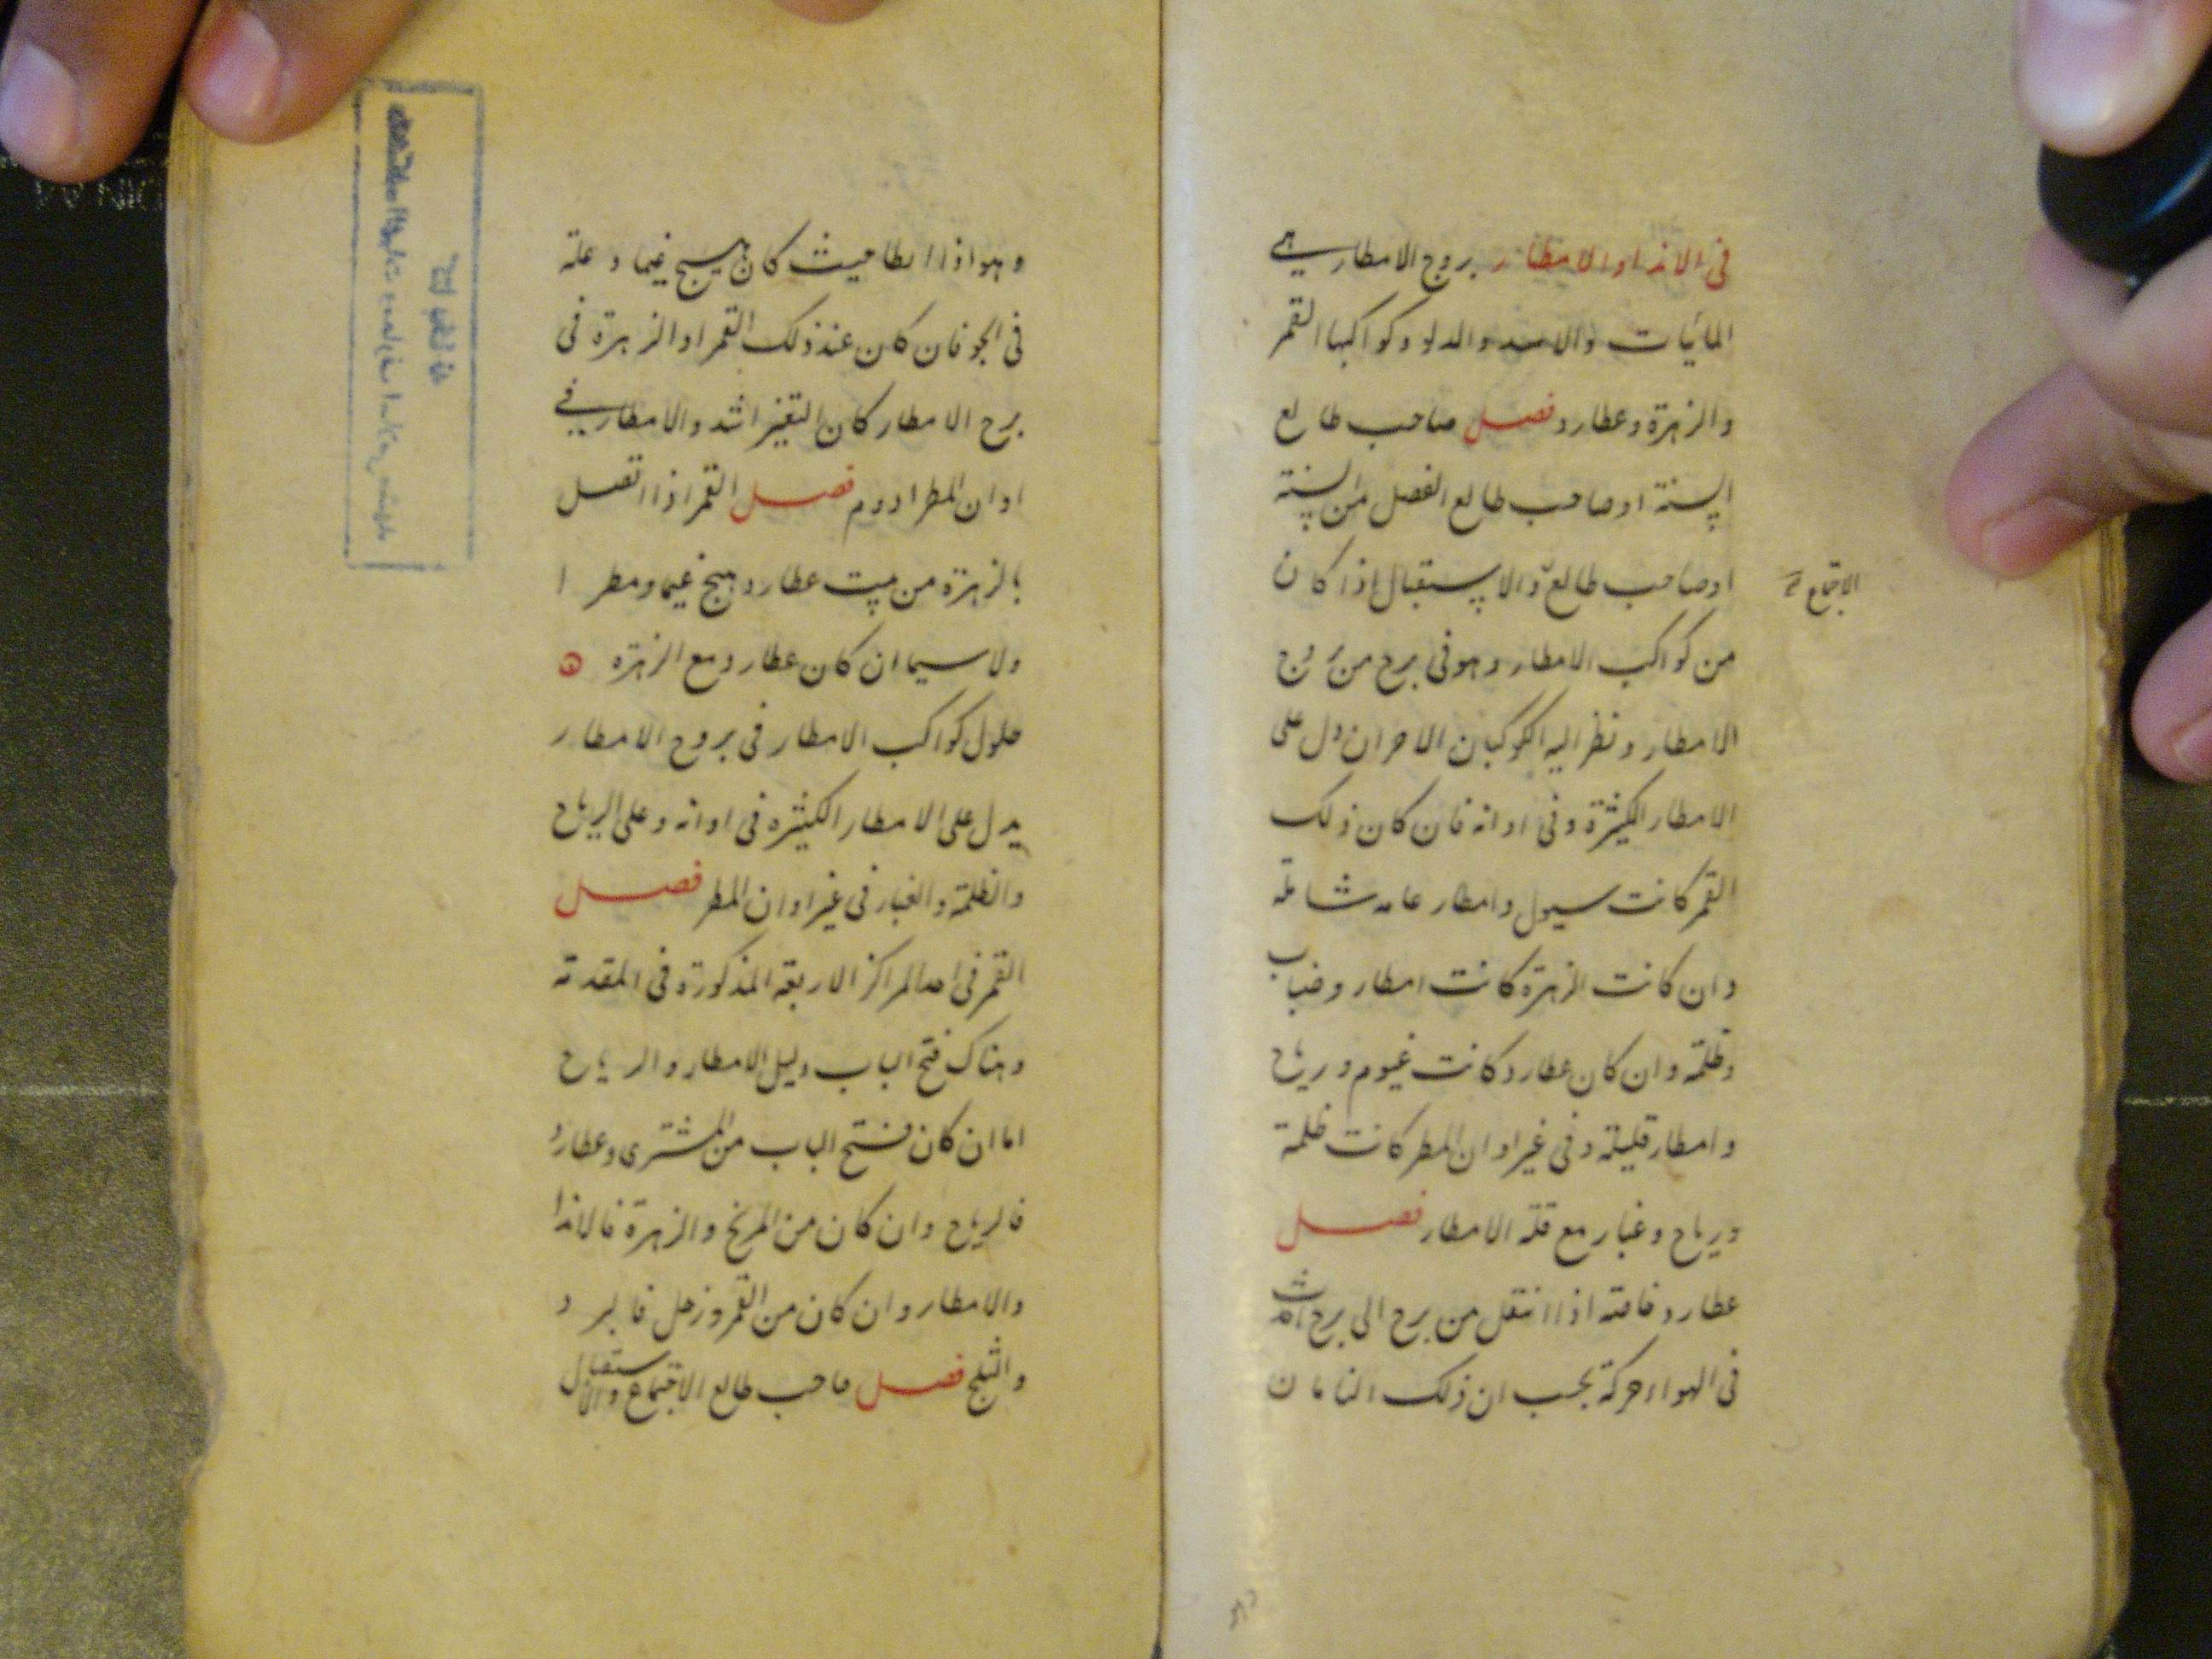 فى الانداء والامطار بروج الامطار هى
المائيات والاسد والدلو وكواكبها القمر
والزهرة وعطارد فصل صاحب طالع
السنة اوصاحب طالع الفصل من السنة
اوصاحب طالع والاستقبال اذا كان
الاجتماع
من كواكب الامطار وهو فى برج من بروج
الامطار ونظر اليه الكوكبان الاخران دل على
الامطار الكثيرة وفى اوانه فان كان ذلك
القمر كانت سيول وامطار عامه شاملة
وان كانت الزهرة كانت امطار وضباب
وظلمة وان كان عطارد كانت غيوم ورياح
وامطار قليلة وفى غير اوان المطر كانت ظلمة
ورياح وغبار مع قلة الامطار فصل
عطارد خاصته اذا انتقل من برج الى برج احدث
فى الهواء حركة بحسب ان ذلك
وهو اذا ابطا حيث كان يهيج غيما وعلة
فى الجو فان كان عند ذلك القمر او الزهرة فى
برج الامطار كان التغير اشد والامطار فى
اوان المطر ادوم فصل القمر اذا اتصل
بالزهرة من بيت عطارد هيج غيما ومطرا
ولا سيما ان كان عطارد مع الزهرة
حلول كواكب الامطار فى بروج الامطار
يدل على الامطار الكثيره فى اوانه وعلى الرياح
والظلمة والغبار فى غير اوان المطر فصل
القمر فى احد المراكز الاربعة المذكورة فى المقدمة
وهناك فتح الباب دليل الامطار والرياح
اما ان كان فتح الباب من المشترى وعطارد
فالرياح وان كان من المريخ والزهرة فالاندا
والامطار وان كان من القمر وزحل فالبرد
والثلج فصل صاحب طالع الاجتماع والاستقبال